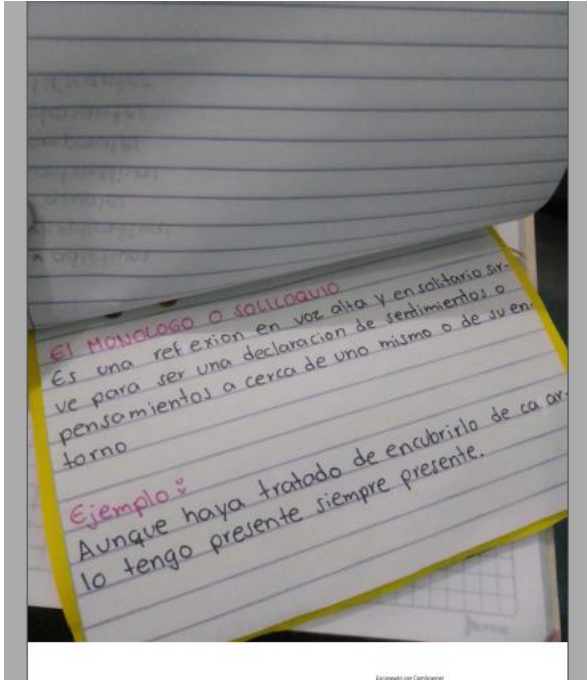 El MONOLOGO O SOLILOQUIO
Es una reflexion en voz alta y en solitario sir-
ve para ser una declaracion de sentimientos o
pensamientos a cerca de uno mismo o de su en-
torno
Ejemplo:
Aunque haya tratado de encubrirlo de ca ar-
lo tengo presente siempre presente.
Escaneado con CamScanner